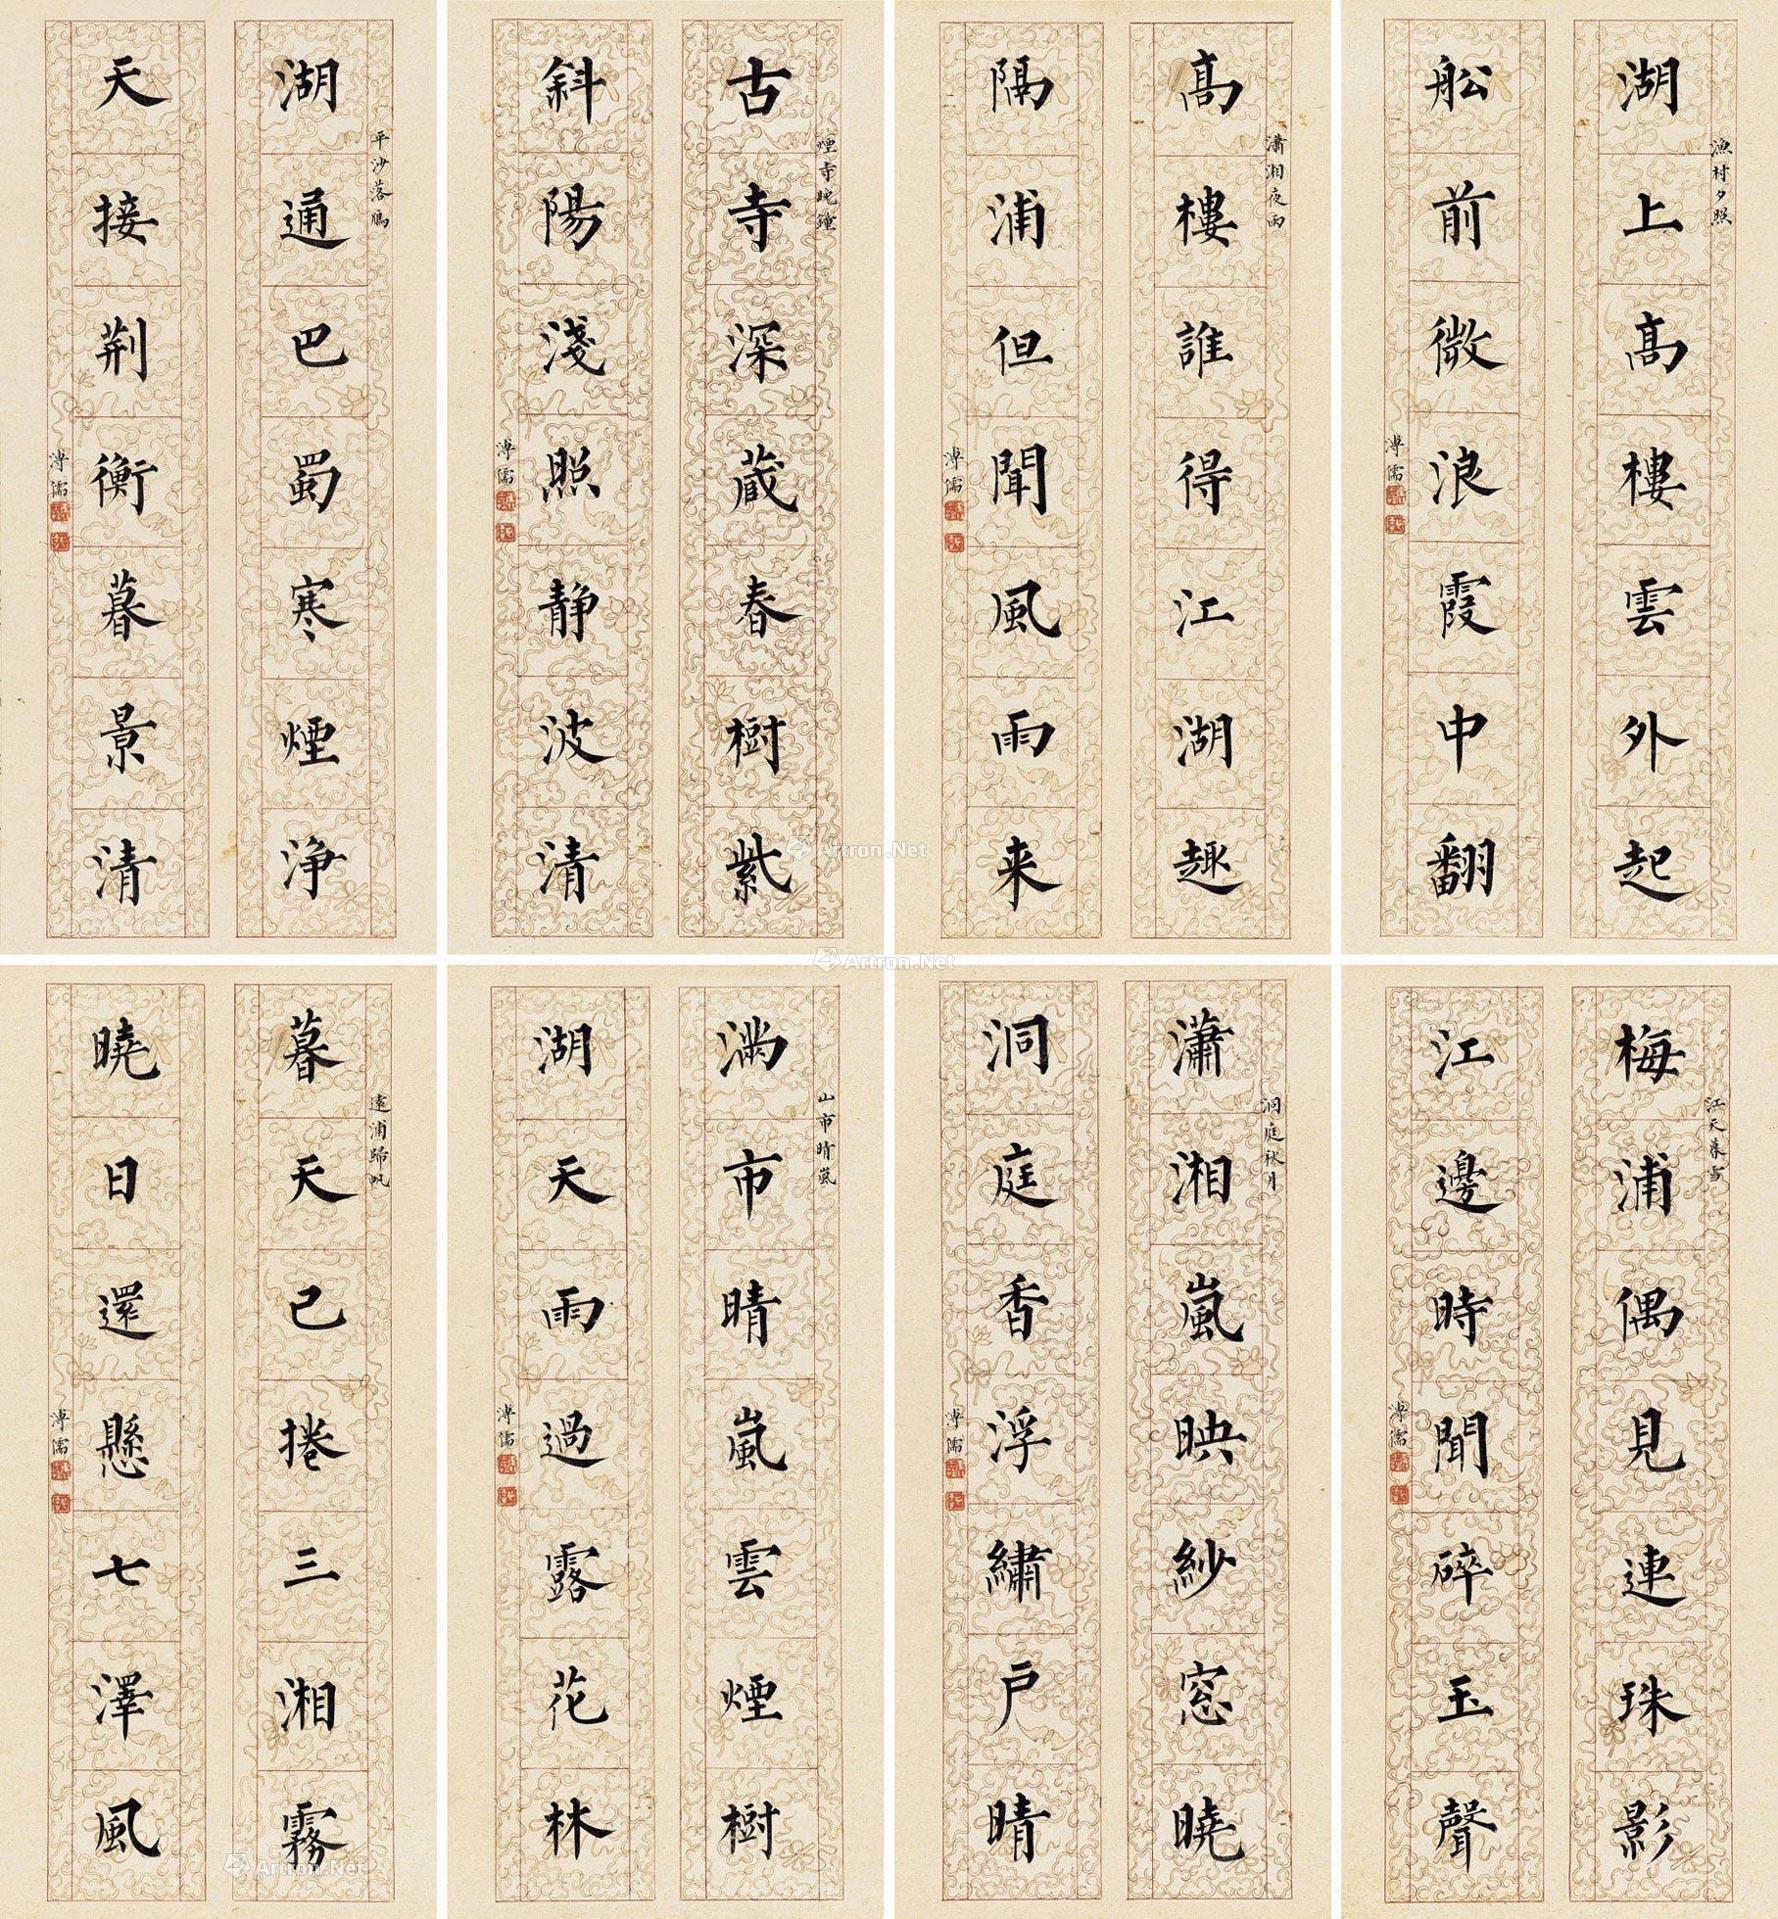 漁村夕照
湖上高樓雲外起
船前微浪霞中翻
溥儒
瀟湘夜雨
高樓誰得江湖趣
隔浦但聞風雨来
溥儒
煙寺晚鐘
古寺深蔵春樹紫
斜陽淺照静波清
溥儒
平沙落鴈
湖通巴蜀寒煙浄
天接荆衡暮景清
溥儒
江天暮雪
梅浦偶見連珠影
江邊時聞碎玉聲
溥儒
洞庭秋月
瀟湘嵐映紗窓曉
洞庭香浮繡戸晴
溥儒
山市晴嵐
滿市晴嵐雲煙樹
湖天雨過露花林
溥儒
遠浦歸帆
暮天已捲三湘霧
曉日還懸七澤風
溥儒
Artron.Net
Artron.Net
Artron.Net